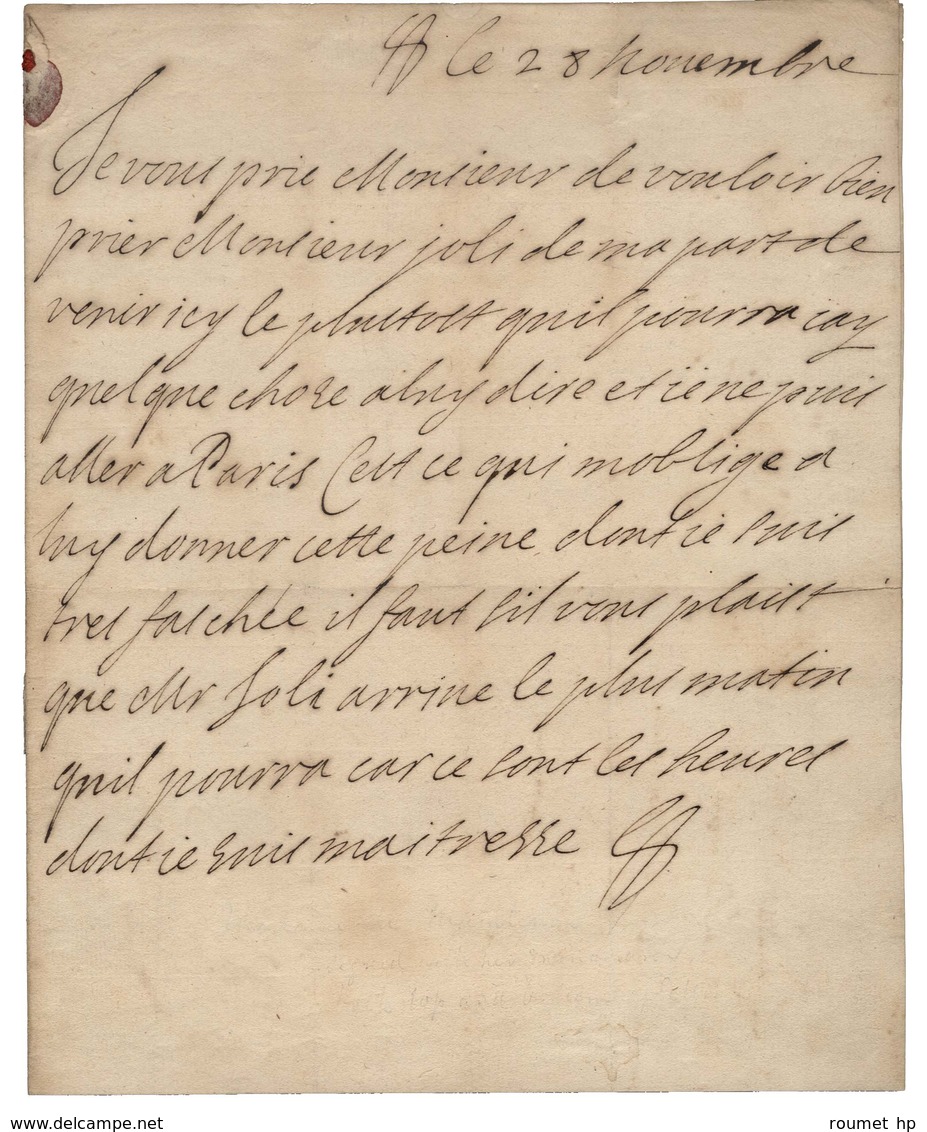 le 28 nouembre
Je vous prie Monsieur de vouloir bien
prier Monsieur joli de ma part de
venir icy le plustost quil pourra iay
quelque chose a luy dire et ie ne puis
aller a Paris Cest ce qui moblige a
luy donner cette peine dont ie suis
tres faschée il faut sil vous plaist
que Mr Joli arriue le plus matin
quil pourra car ce sont les heures
dont ie suis maitresse
www.delcampe.net
roumet hp